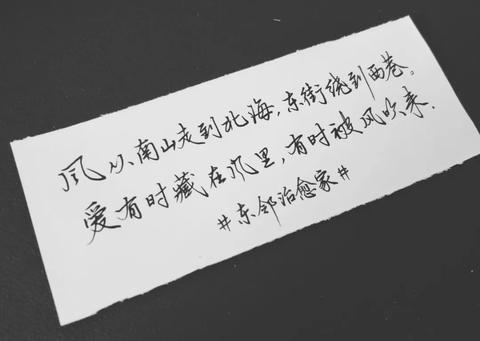 风从南山走到北海,东街绕到西巷。
爱有时藏在风里,有时被风吹来.
#东邻治愈家#